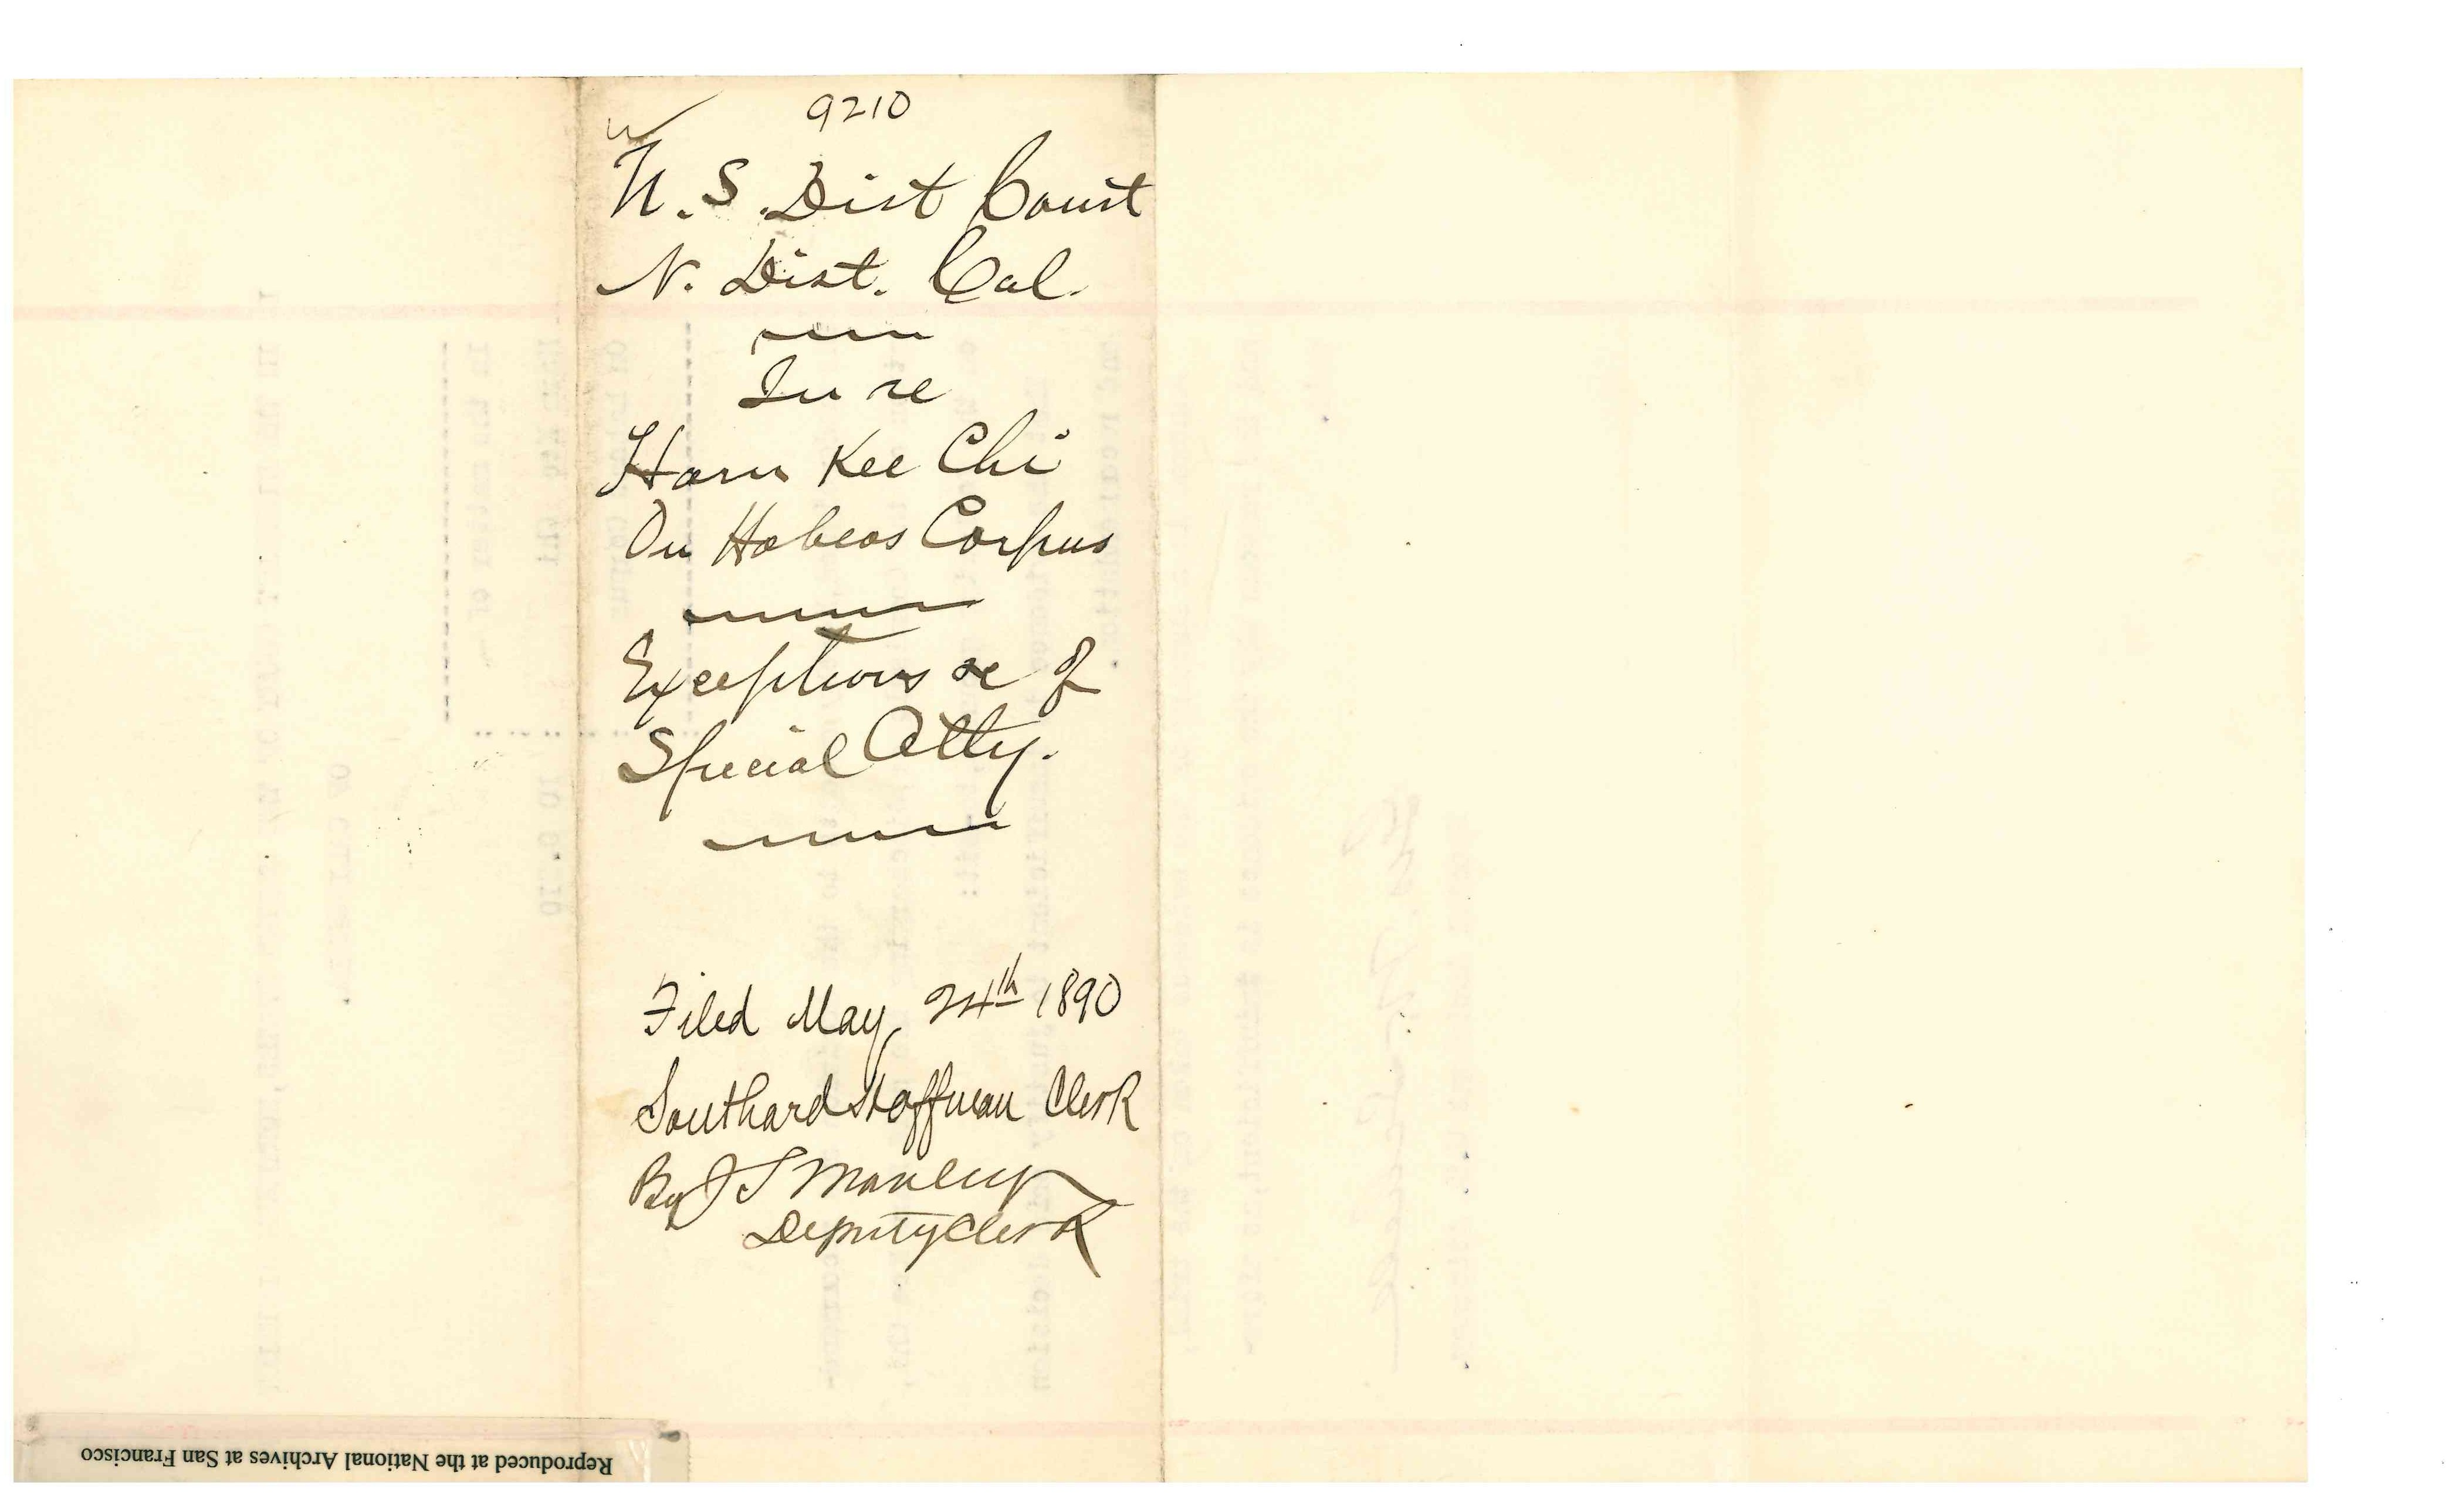 9210
U.S. Dist Court
N. Dist. Cal.
In re
Ham Kee Chi
On Habeas Corpus
Exceptions &c of
Special Atty.
Filed May 24th 1890
Southard Hoffman Clerk
By J S Manley
Deputy Clerk
Reproduced at the National Archives at San Francisco